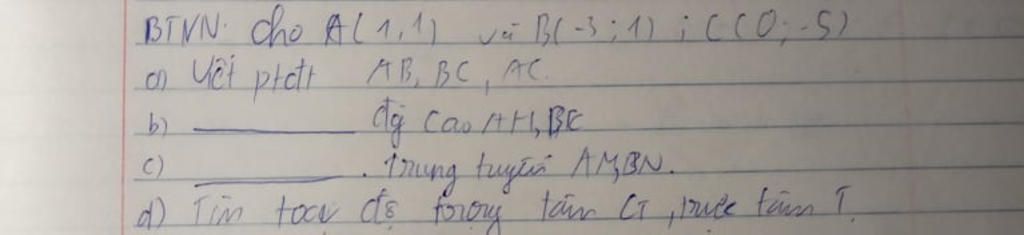 BTVN: Cho A(1,1) và B(-3;1); C(0;-5)
a) Viết ptđt AB, BC, AC.
b) ______ đg cao AH, BE
c) ______. trung tuyến AM, BN.
d) Tìm toạ độ trọng tâm G, trực tâm T.